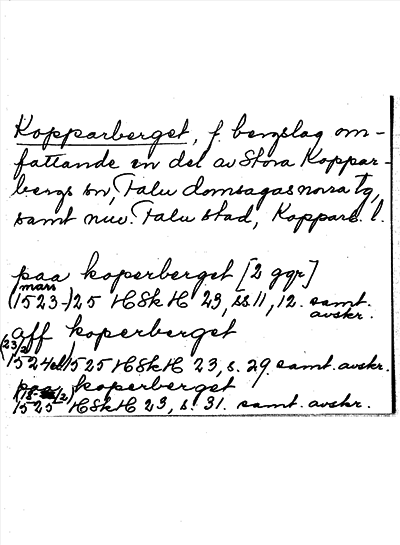 Kopparberget, f. bergslag om-
fattande en del av Stora Koppar-
bergs sn, Falu domsagas norra tg,
samt nuv. Falu stad, Kopparb. l.
paa koperberget [2 ggr]
mars
(1523-)25 HSkH 23, ss. 11, 12. samt.
avskr.
aff koperberget
(23/2)
1524 el. 1525 HSkH 23, s. 29. samt. avskr.
paa koperberget
(18-/2)
1525 HSkH 23, s. 31. samt. avskr.